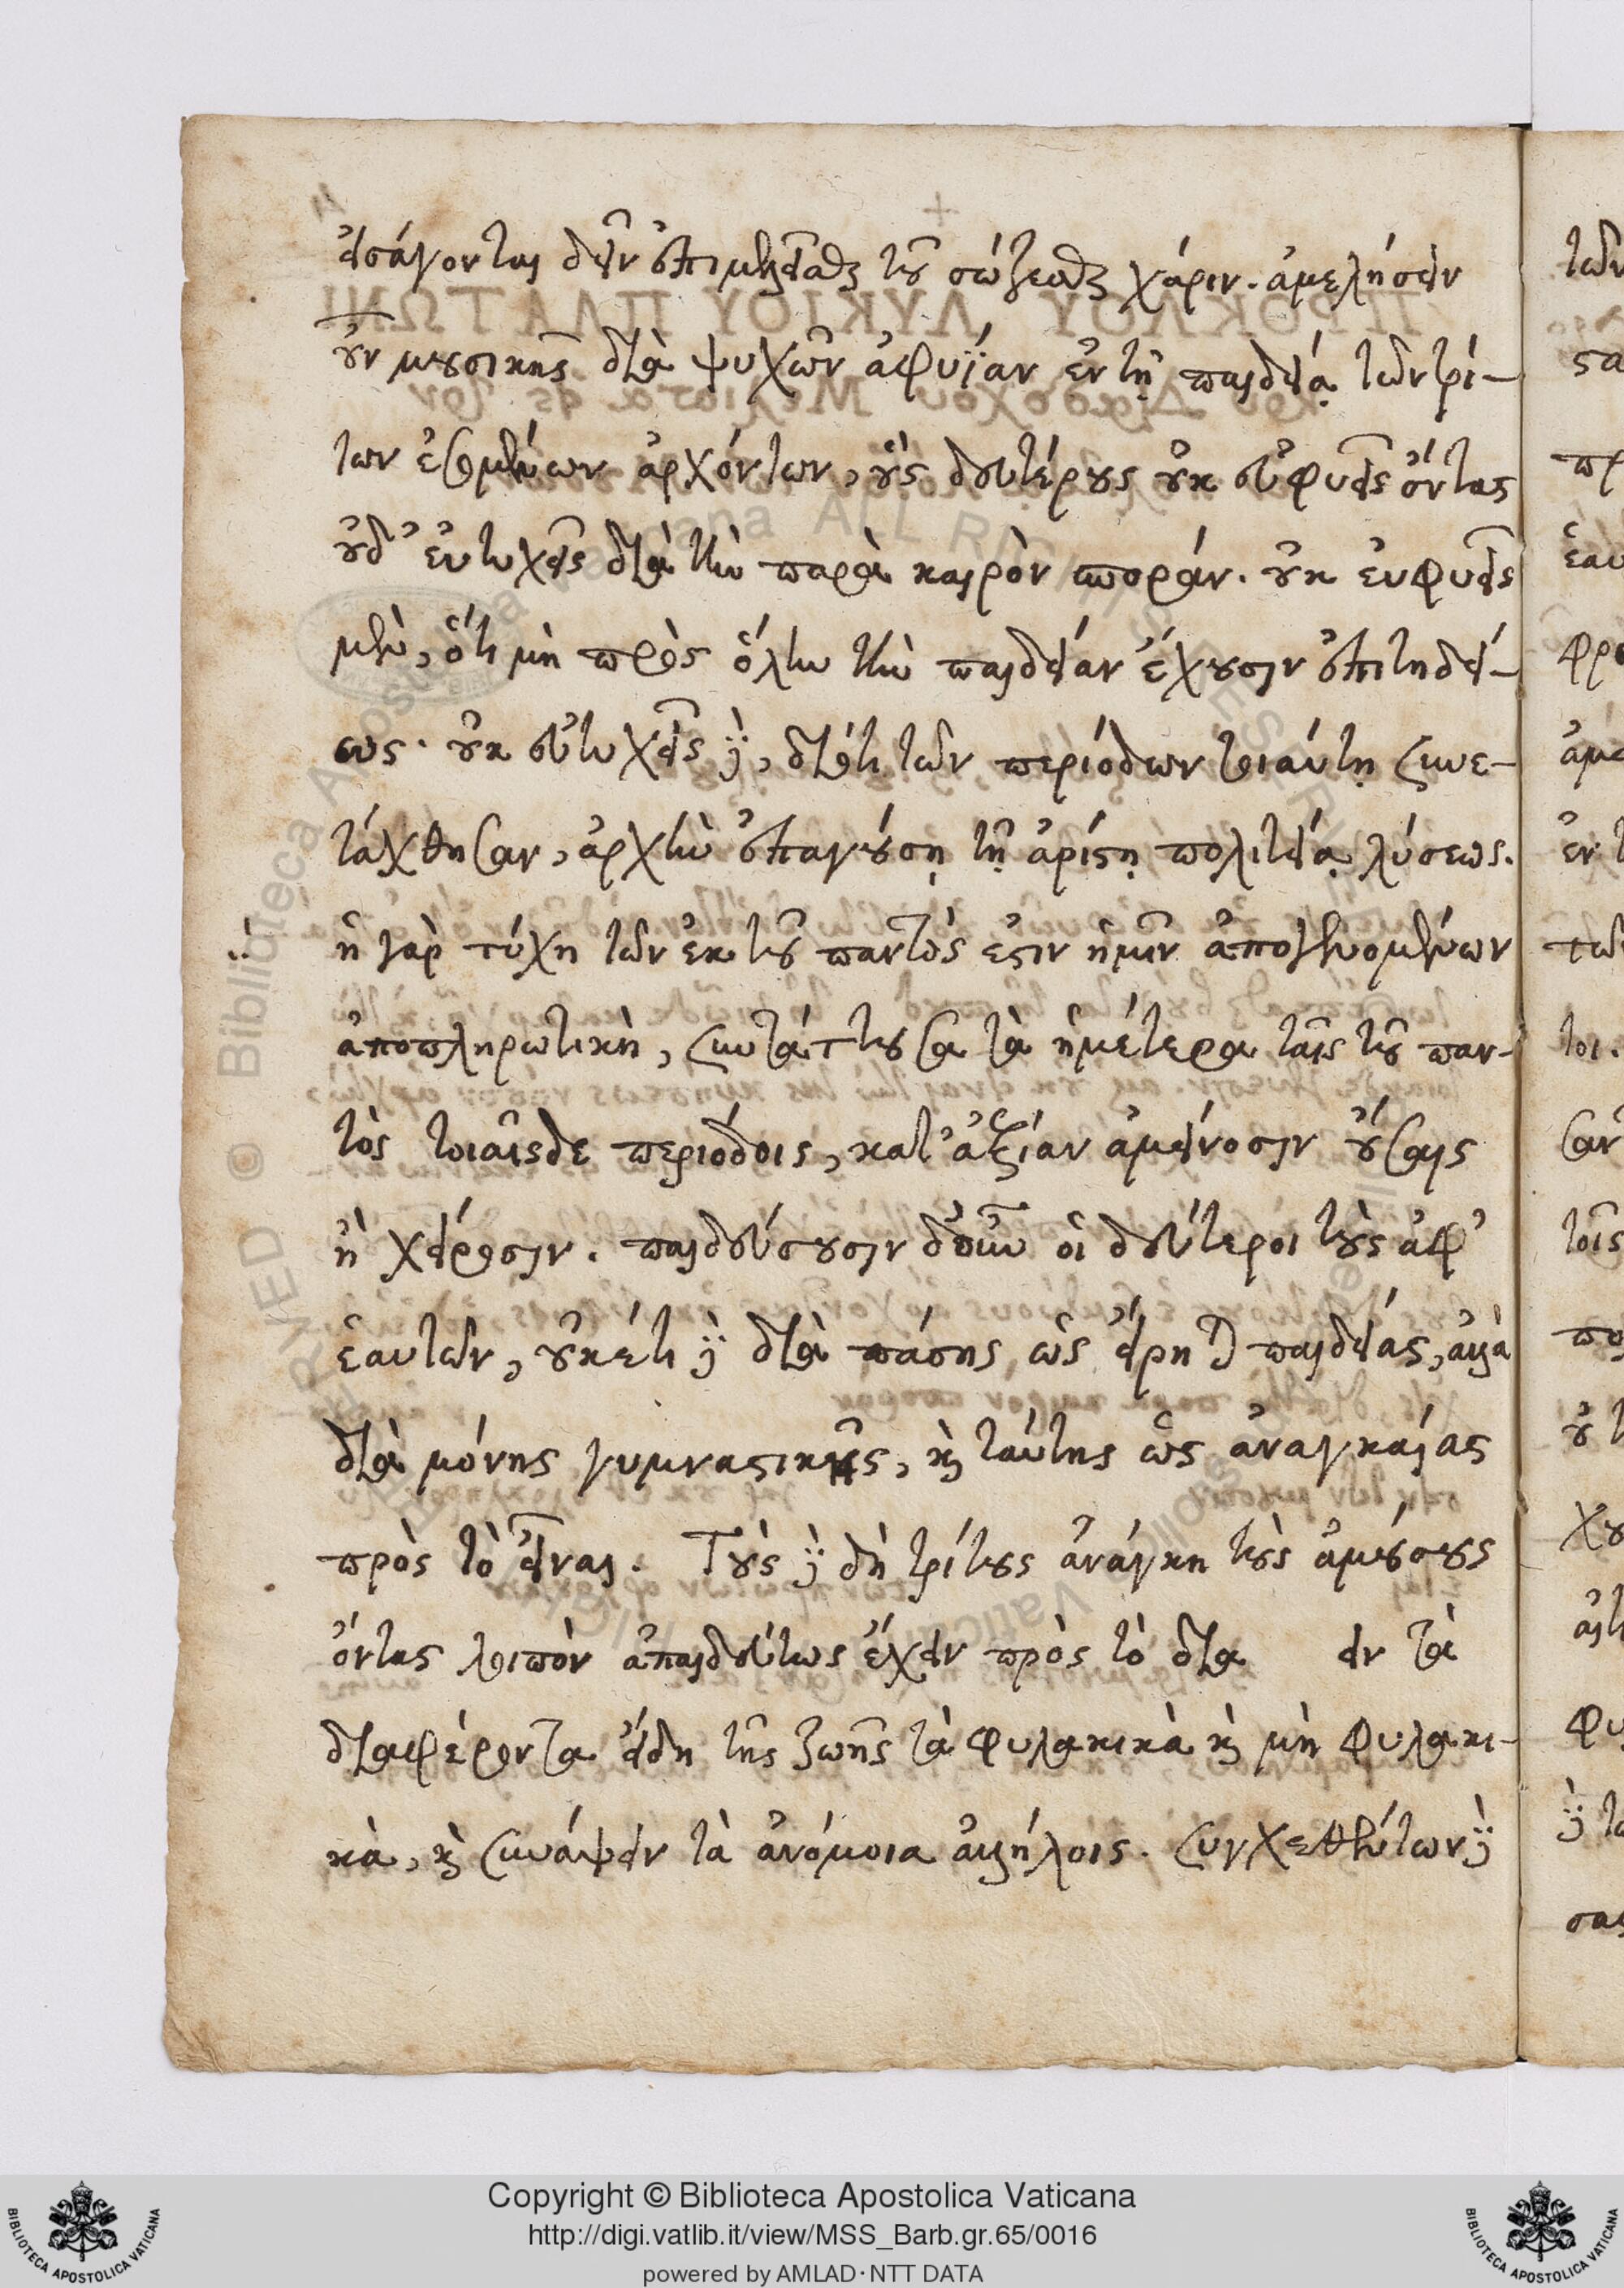 εἰσάγονται δεῖν ἐπιμελεῖσθαι τοῦ σώζεσθαι χάριν. ἀμελήσειν
οὖν μουσικῆς διὰ ψυχῶν ἀφυΐαν ἐν τῇ παιδείᾳ τῶν τρί-
των ἐσομένων ἀρχόντων, οὓς δευτέρους οὐκ εὐφυεῖς ὄντας
οὐδ' εὐτυχεῖς διὰ τὴν παρὰ καιρὸν σποράν. οὐκ εὐφυεῖς
μὲν, ὅτι μὴ πρὸς ὅλην τὴν παιδείαν ἔχουσιν ἐπιτηδεί-
ως. οὐκ εὐτυχεῖς δὲ, διότι τῶν περιόδων τοιαύτῃ συνε-
τάχθησαν, ἀρχὴν ἐπαγούσῃ τῇ ἀρίστῃ πολιτείᾳ λύσεως.
ἡ γὰρ τύχη τῶν ἐκ τοῦ παντός ἐστιν ἡμῖν ἀπογενομένων
ἀποπληρωτικὴ, συντάττουσα τὰ ἡμέτερα ταῖς τοῦ παν-
τὸς τοιαῖσδε περιόδοις, κατ' ἀξίαν ἀμείνοσιν οὔσαις
ἢ χείροσιν. παιδεύσουσιν δ' οὖν οἱ δεύτεροι τοὺς ἀφ'
ἑαυτῶν, οὐκέτι δὲ διὰ πάσης ὡς εἴρηται παιδείας, ἀλλὰ
διὰ μόνης γυμναστικῆς, καὶ ταύτης ὡς ἀναγκαίας
πρὸς τὸ εἶναι. Τοὺς δὲ δὴ τρίτους ἀνάγκη τοὺς ἀμούσους
ὄντας λοιπὸν ἀπαιδεύτως ἔχειν πρὸς τὸ δια ειν τὰ
διαφέροντα εἴδη τῆς ζωῆς τὰ φυλακικὰ καὶ μὴ φυλακι-
κὰ, καὶ συνάψειν τὰ ἀνόμοια ἀλλήλοις. συγχεθέντων δὲ
Copyright © Biblioteca Apostolica Vaticana
http://digi.vatlib.it/view/MSS_Barb.gr.65/0016
powered by AMLAD·NTT DATA